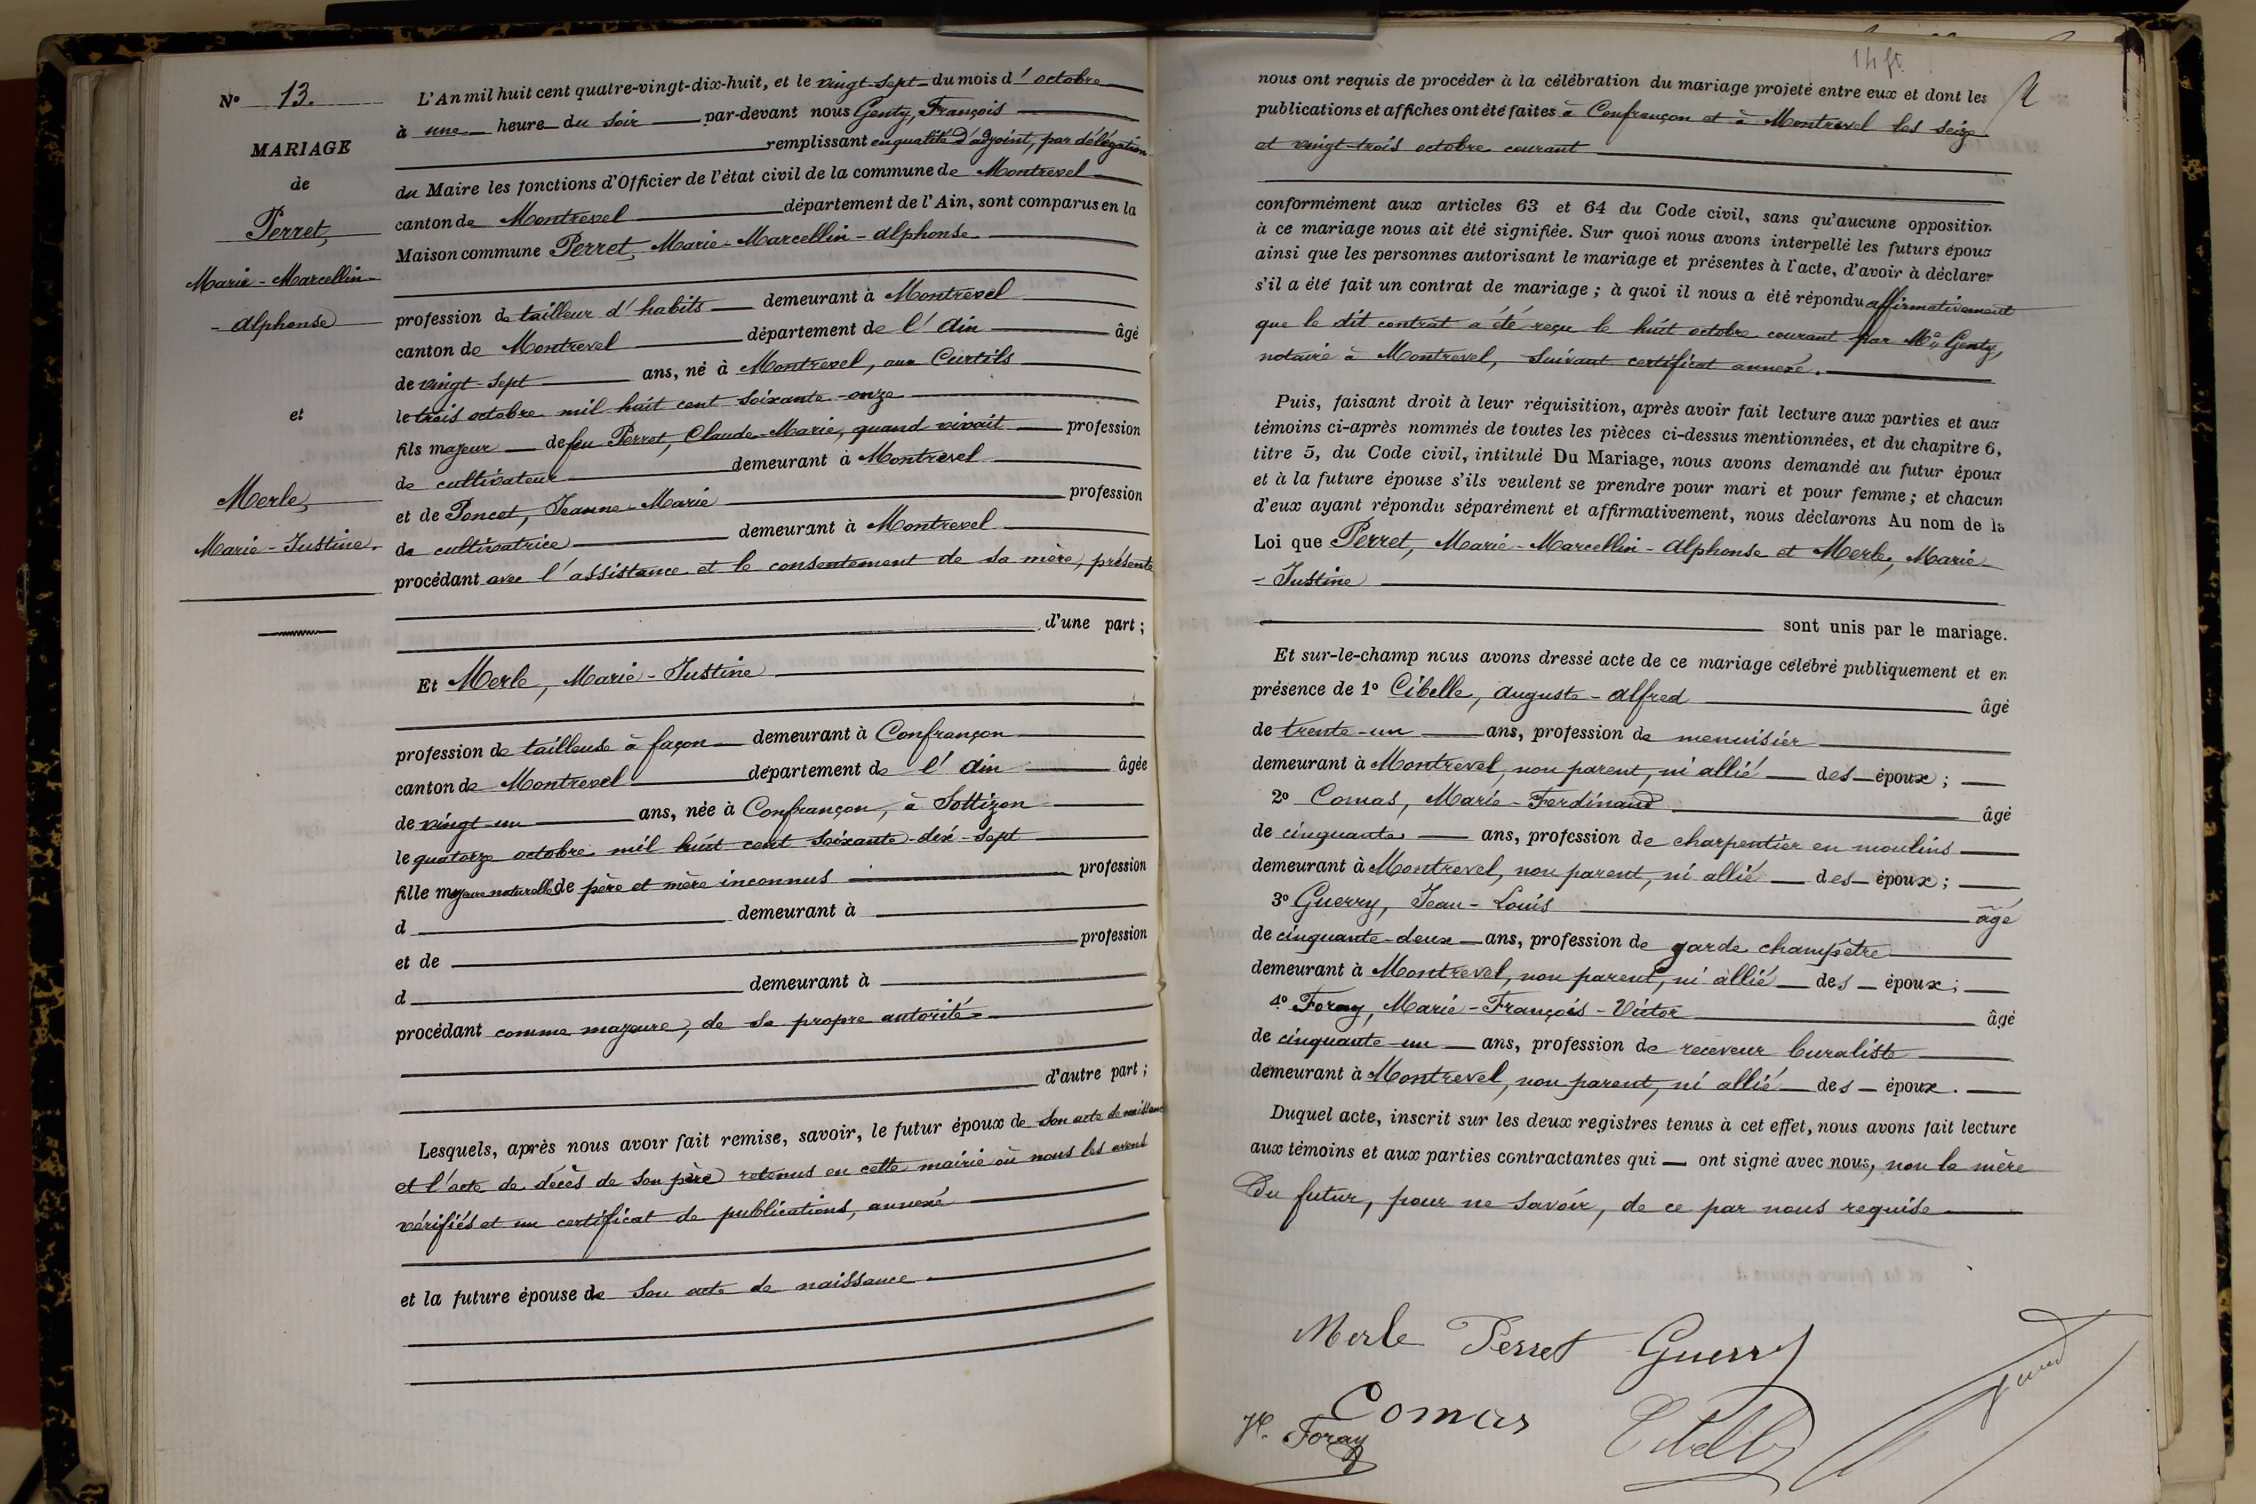 N° 13.
MARIAGE
de
Perret,
Marie-Marcellin-
-Alphonse
et
Merle,
Marie-Justine.
L'An mil huit cent quatre-vingt-dix-huit, et le vingt-sept du mois d'octobre
à une heure du soir par-devant nous Genty, François
remplissant en qualité d'adjoint, par délégation
du Maire les fonctions d'Officier de l'état civil de la commune de Montrevel
canton de Montrevel département de l'Ain, sont comparus en la
Maison commune Perret, Marie-Marcellin-Alphonse
profession de tailleur d'habits demeurant à Montrevel
canton de Montrevel département de l'Ain âgé
de vingt-sept ans, né à Montrevel, aux Curtils
le trois octobre mil huit cent soixante-onze
fils majeur de feu Perret, Claude-Marie, quand vivait profession
de cultivateur demeurant à Montrevel
et de Poncet, Jeanne-Marie profession
de cultivatrice demeurant à Montrevel
procédant avec l'assistance et le consentement de sa mère, présente
d'une part;
Et Merle, Marie-Justine
profession de tailleuse à façon demeurant à Confrançon
canton de Montrevel département de l'Ain âgée
de vingt-un ans, née à Confrançon, à Sottizon
le quatorze octobre mil huit cent soixante-dix-sept
fille majeure naturelle de père et mère inconnus profession
d demeurant à
et de profession
d demeurant à
procédant comme majeure, de sa propre autorité
d'autre part;
Lesquels, après nous avoir fait remise, savoir, le futur époux de son acte de naissance
et l'acte de décès de son père retenus en cette mairie où nous les avons
vérifiés et un certificat de publications, annexé
et la future épouse de son acte de naissance.
14 ft.
nous ont requis de procéder à la célébration du mariage projeté entre eux et dont les
publications et affiches ont été faites à Confrançon et à Montrevel les seize
et vingt-trois octobre courant
conformément aux articles 63 et 64 du Code civil, sans qu'aucune opposition
à ce mariage nous ait été signifiée. Sur quoi nous avons interpellé les futurs époux
ainsi que les personnes autorisant le mariage et présentes à l'acte, d'avoir à déclarer
s'il a été fait un contrat de mariage; à quoi il nous a été répondu affirmativement
que le dit contrat a été reçu le huit octobre courant par Me Genty,
notaire à Montrevel, suivant certificat annexé.
Puis, faisant droit à leur réquisition, après avoir fait lecture aux parties et aux
témoins ci-après nommés de toutes les pièces ci-dessus mentionnées, et du chapitre 6,
titre 5, du Code civil, intitulé Du Mariage, nous avons demandé au futur époux
et à la future épouse s'ils veulent se prendre pour mari et pour femme; et chacun
d'eux ayant répondu séparément et affirmativement, nous déclarons Au nom de la
Loi que Perret, Marie-Marcellin-Alphonse et Merle, Marie
-Justine
sont unis par le mariage.
Et sur-le-champ nous avons dressé acte de ce mariage célébré publiquement et en
présence de 1° Cibelle, Auguste-Alfred âgé
de trente-un ans, profession de menuisier
demeurant à Montrevel, non parent, ni allié des époux;
2° Comas, Marie-Ferdinand âgé
de cinquante ans, profession de charpentier en moulins
demeurant à Montrevel, non parent, ni allié des époux;
3° Guerry, Jean-Louis âgé
de cinquante-deux ans, profession de garde champêtre
demeurant à Montrevel, non parent, ni allié des époux;
4° Foray, Marie-François-Victor âgé
de cinquante-un ans, profession de receveur buraliste
demeurant à Montrevel, non parent, ni allié des époux.
Duquel acte, inscrit sur les deux registres tenus à cet effet, nous avons fait lecture
aux témoins et aux parties contractantes qui ont signé avec nous, non la mère
du futur, pour ne savoir, de ce par nous requise
Merle Perret Guerry
Comas Cibelle
Foray